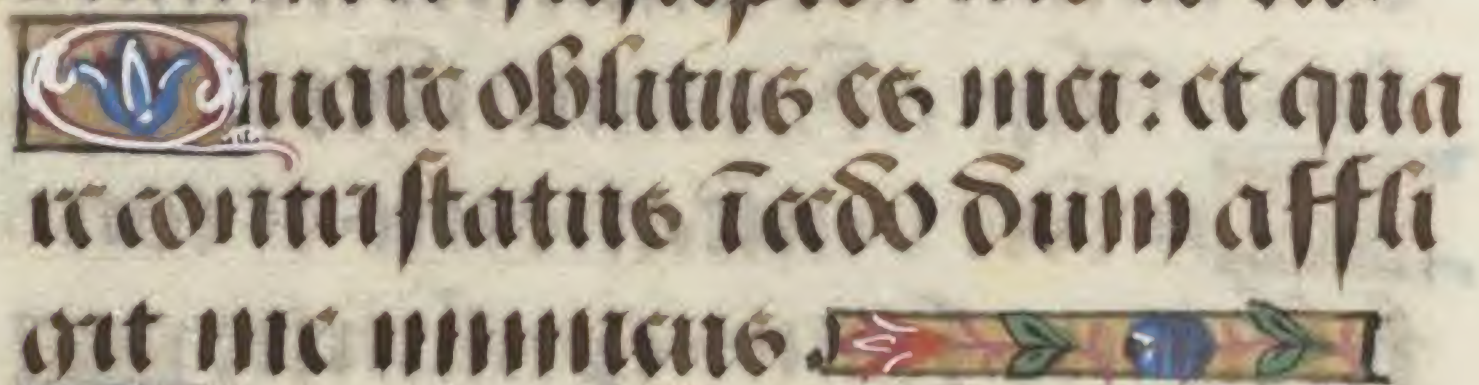 Quare oblitus es mei: et qua
re contristatus īcedo dum affli
git me inimicus